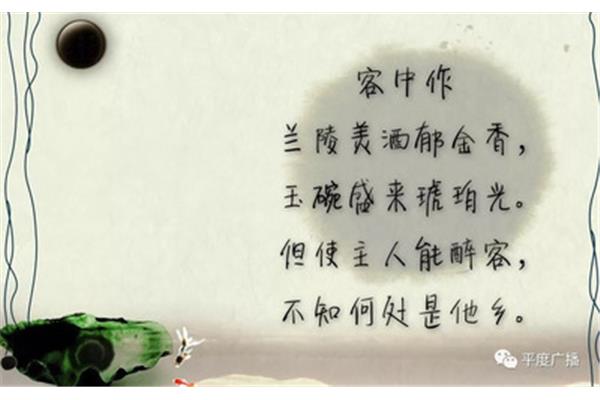 客中作
兰陵美酒郁金香，
玉碗盛来琥珀光。
但使主人能醉客，
不知何处是他乡。
平度广播